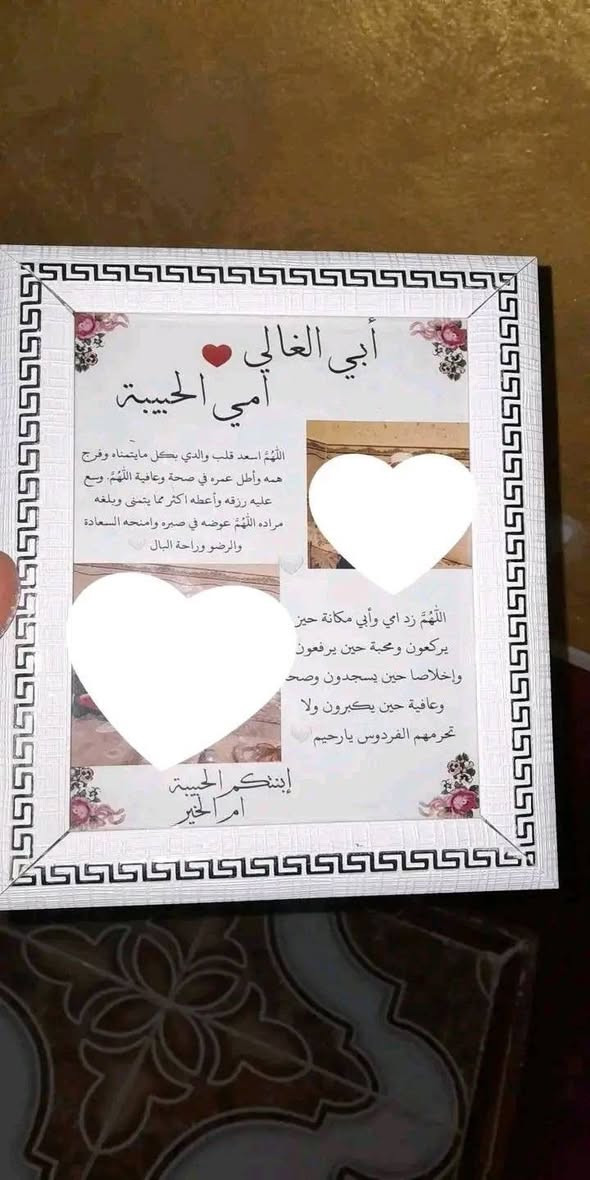 أبي الغالي
امي الحبيبة
اللَّهُمَّ اسعد قلب والدي بكل مايتمناه وفرج
همه وأطل عمره في صحة وعافية اللَّهُمَّ. وسع
عليه رزقه وأعطه اكثر مما يتمنى وبلغه
مراده اللَّهُمَّ عوضه في صبره وامنحه السعادة
والرضو وراحة البال
اللَّهُمَّ زد امي وأبي مكانة حين
يركعون ومحبة حين يرفعون
وإخلاصا حين يسجدون وصحـ
وعافية حين يكبرون ولا
تحرمهم الفردوس يارحيم
إبنتكم الحبيبة
ام الخير